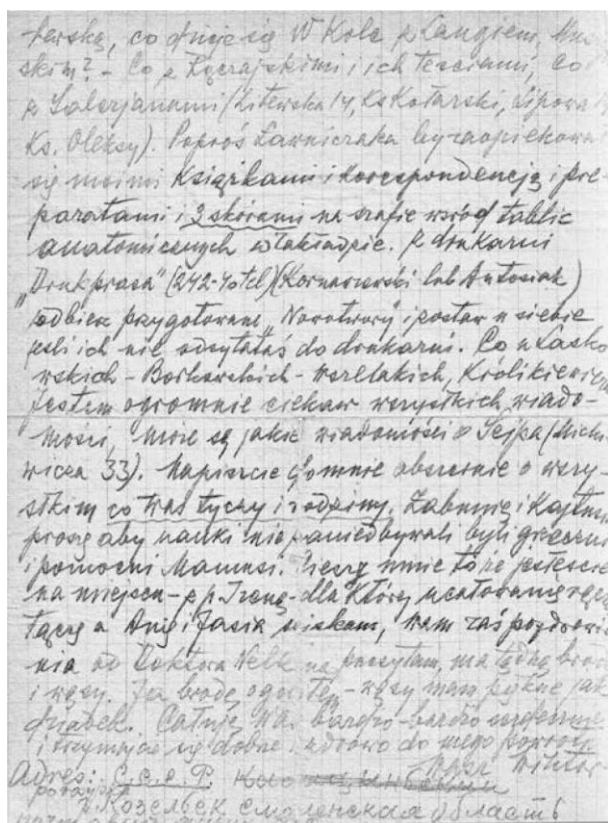 co dzieje się W Kole z Langiem,
skim? - Co z Łączajskimi i ich teściami, co
z Salezjanami (Litewska 14, Ks Kotarski, Lipowa
Ks. Oleksy). Poproś Ławniczaka by zaopiekował
się moimi książkami i korespondencją i pre-
paratami i 3 skórami na szafie wśród tablic
anatomicznych w Zakładzie. Z drukarni
„Drukprasa" (242-40 tel) (Kornaszewski lub Antosiak)
odbierz przygotowane „Nowotwory" i postaw u siebie
jeśli ich nie odsyłałaś do drukarni. Co u Lasko
wskich - Borkowskich - Wszelakich, Królikiewicz
Jestem ogromnie ciekaw wszystkich wiado-
mości, może są jakie wiadomości o Sejpa (Micki
wicza 33). Napiszcie do mnie obszernie o wszy-
stkim co Was tyczy i rodziny. Zabunię i Kajtunia
proszę aby nauki nie zaniedbywali byli grzeczni
i pomocni Mamusi. Cieszy mnie to że jesteście
na miejscu - z p. Ireną - dla której ucałowania rąk
łączę a Anię i Jasia ściskam, Wam zaś pozdrowie
nia od Doktora Nelk na przesyłam, ma ładną brodę
i wąsy. Ja brodę ogoliłem - wąsy mam piękne jak
dziadek. Całuję Was bardzo - bardzo serdecznie
i trzymajcie się dobrze i zdrowo do mego powrotu.
Wiktor
Adres: С.С.С.Р.
г. Козельск смоленская область